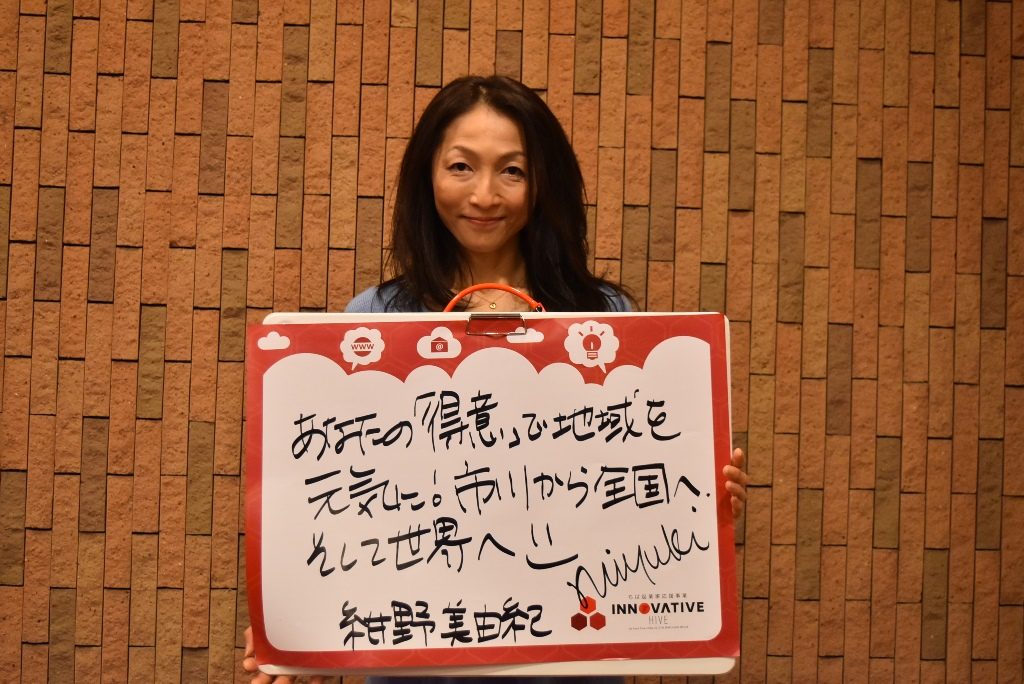 WWW
@
あなたの「得意」で地域を
元気に!市川から全国へ.
そして世界へ
miyuki
紺野美由紀
ちば起業家応援事業
INNOVATIVE
HIVE